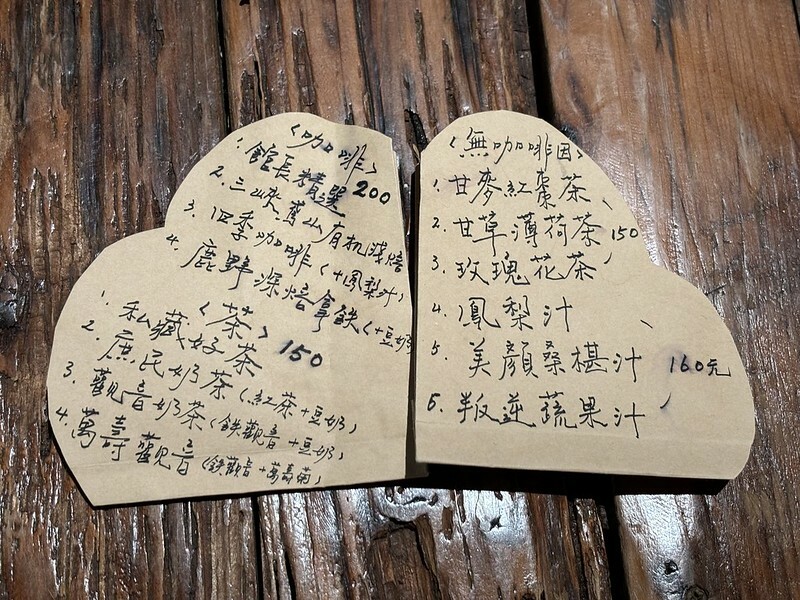 〈咖啡〉
1. 館長精選 200
2. 三峽鳶山有机浅焙
3. 四季咖啡(+鳳梨汁)
4. 鹿野深焙拿鉄(+豆奶
〈茶〉
1. 私藏好茶 150
2. 庶民奶茶(紅茶+豆奶)
3. 觀音奶茶(鉄觀音+豆奶)
4. 萬壽觀音(鉄觀音+萬壽菊)
〈無咖啡因〉
1. 甘麥紅棗茶
2. 甘草薄荷茶 150
3. 玫瑰花茶
4. 鳳梨汁
5. 美顏桑椹汁 160元
6. 叛逆蔬果汁